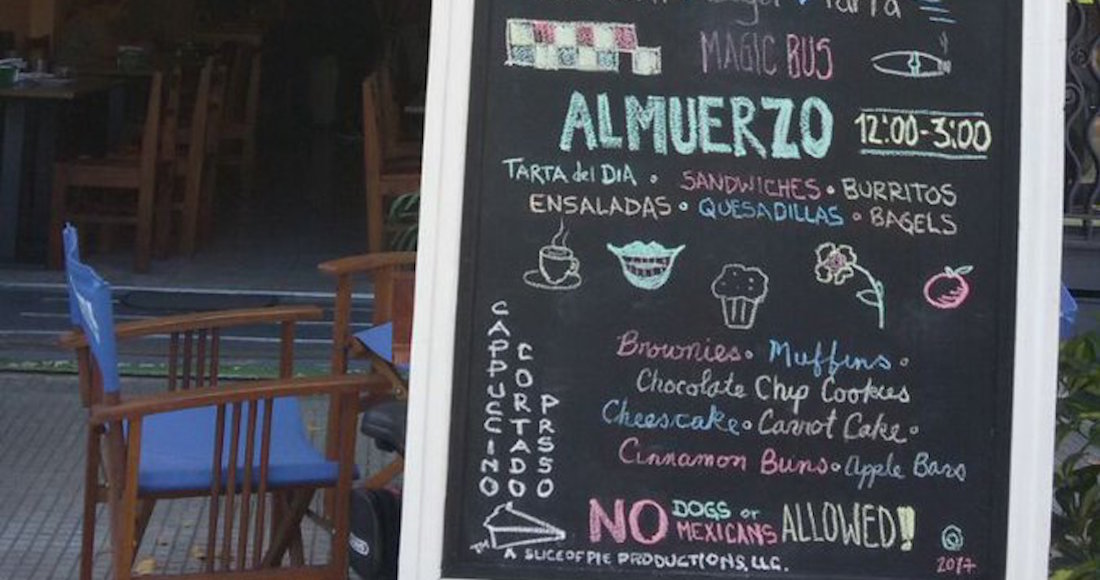 Tarta
MAGIC BUS
ALMUERZO 12:00-3:00
TARTA del DIA • SANDWICHES • BURRITOS
ENSALADAS • QUESADILLAS • BAGELS
CAPPUCCINO
CORTADO
PRSSO
Brownies • Muffins •
Chocolate Chip Cookies
Cheescake • Carrot Cake •
Cinnamon Buns • Apple Bars
NO DOGS or MEXICANS ALLOWED!
TM A SLICE OF PIE PRODUCTIONS, LLC.
2017